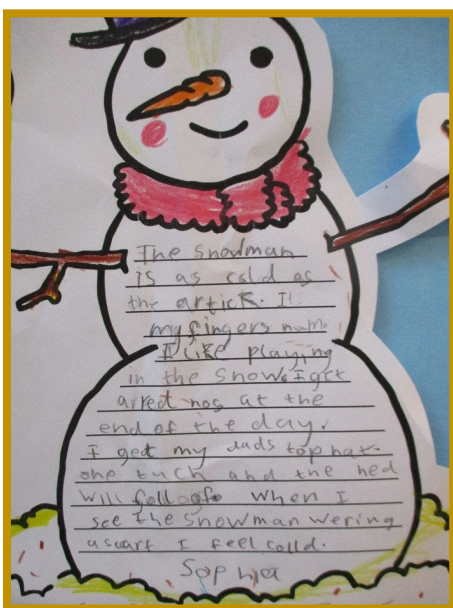 The snowman
is as cold as
the artick. Its
my fingers num.
I like playing
in the snow. I get
a red nos at the
end of the day.
I get my dads top hat.
one tuch and the hed
will fall off. When I
see the snowman wering
a scarf I feel colld.
Sophia